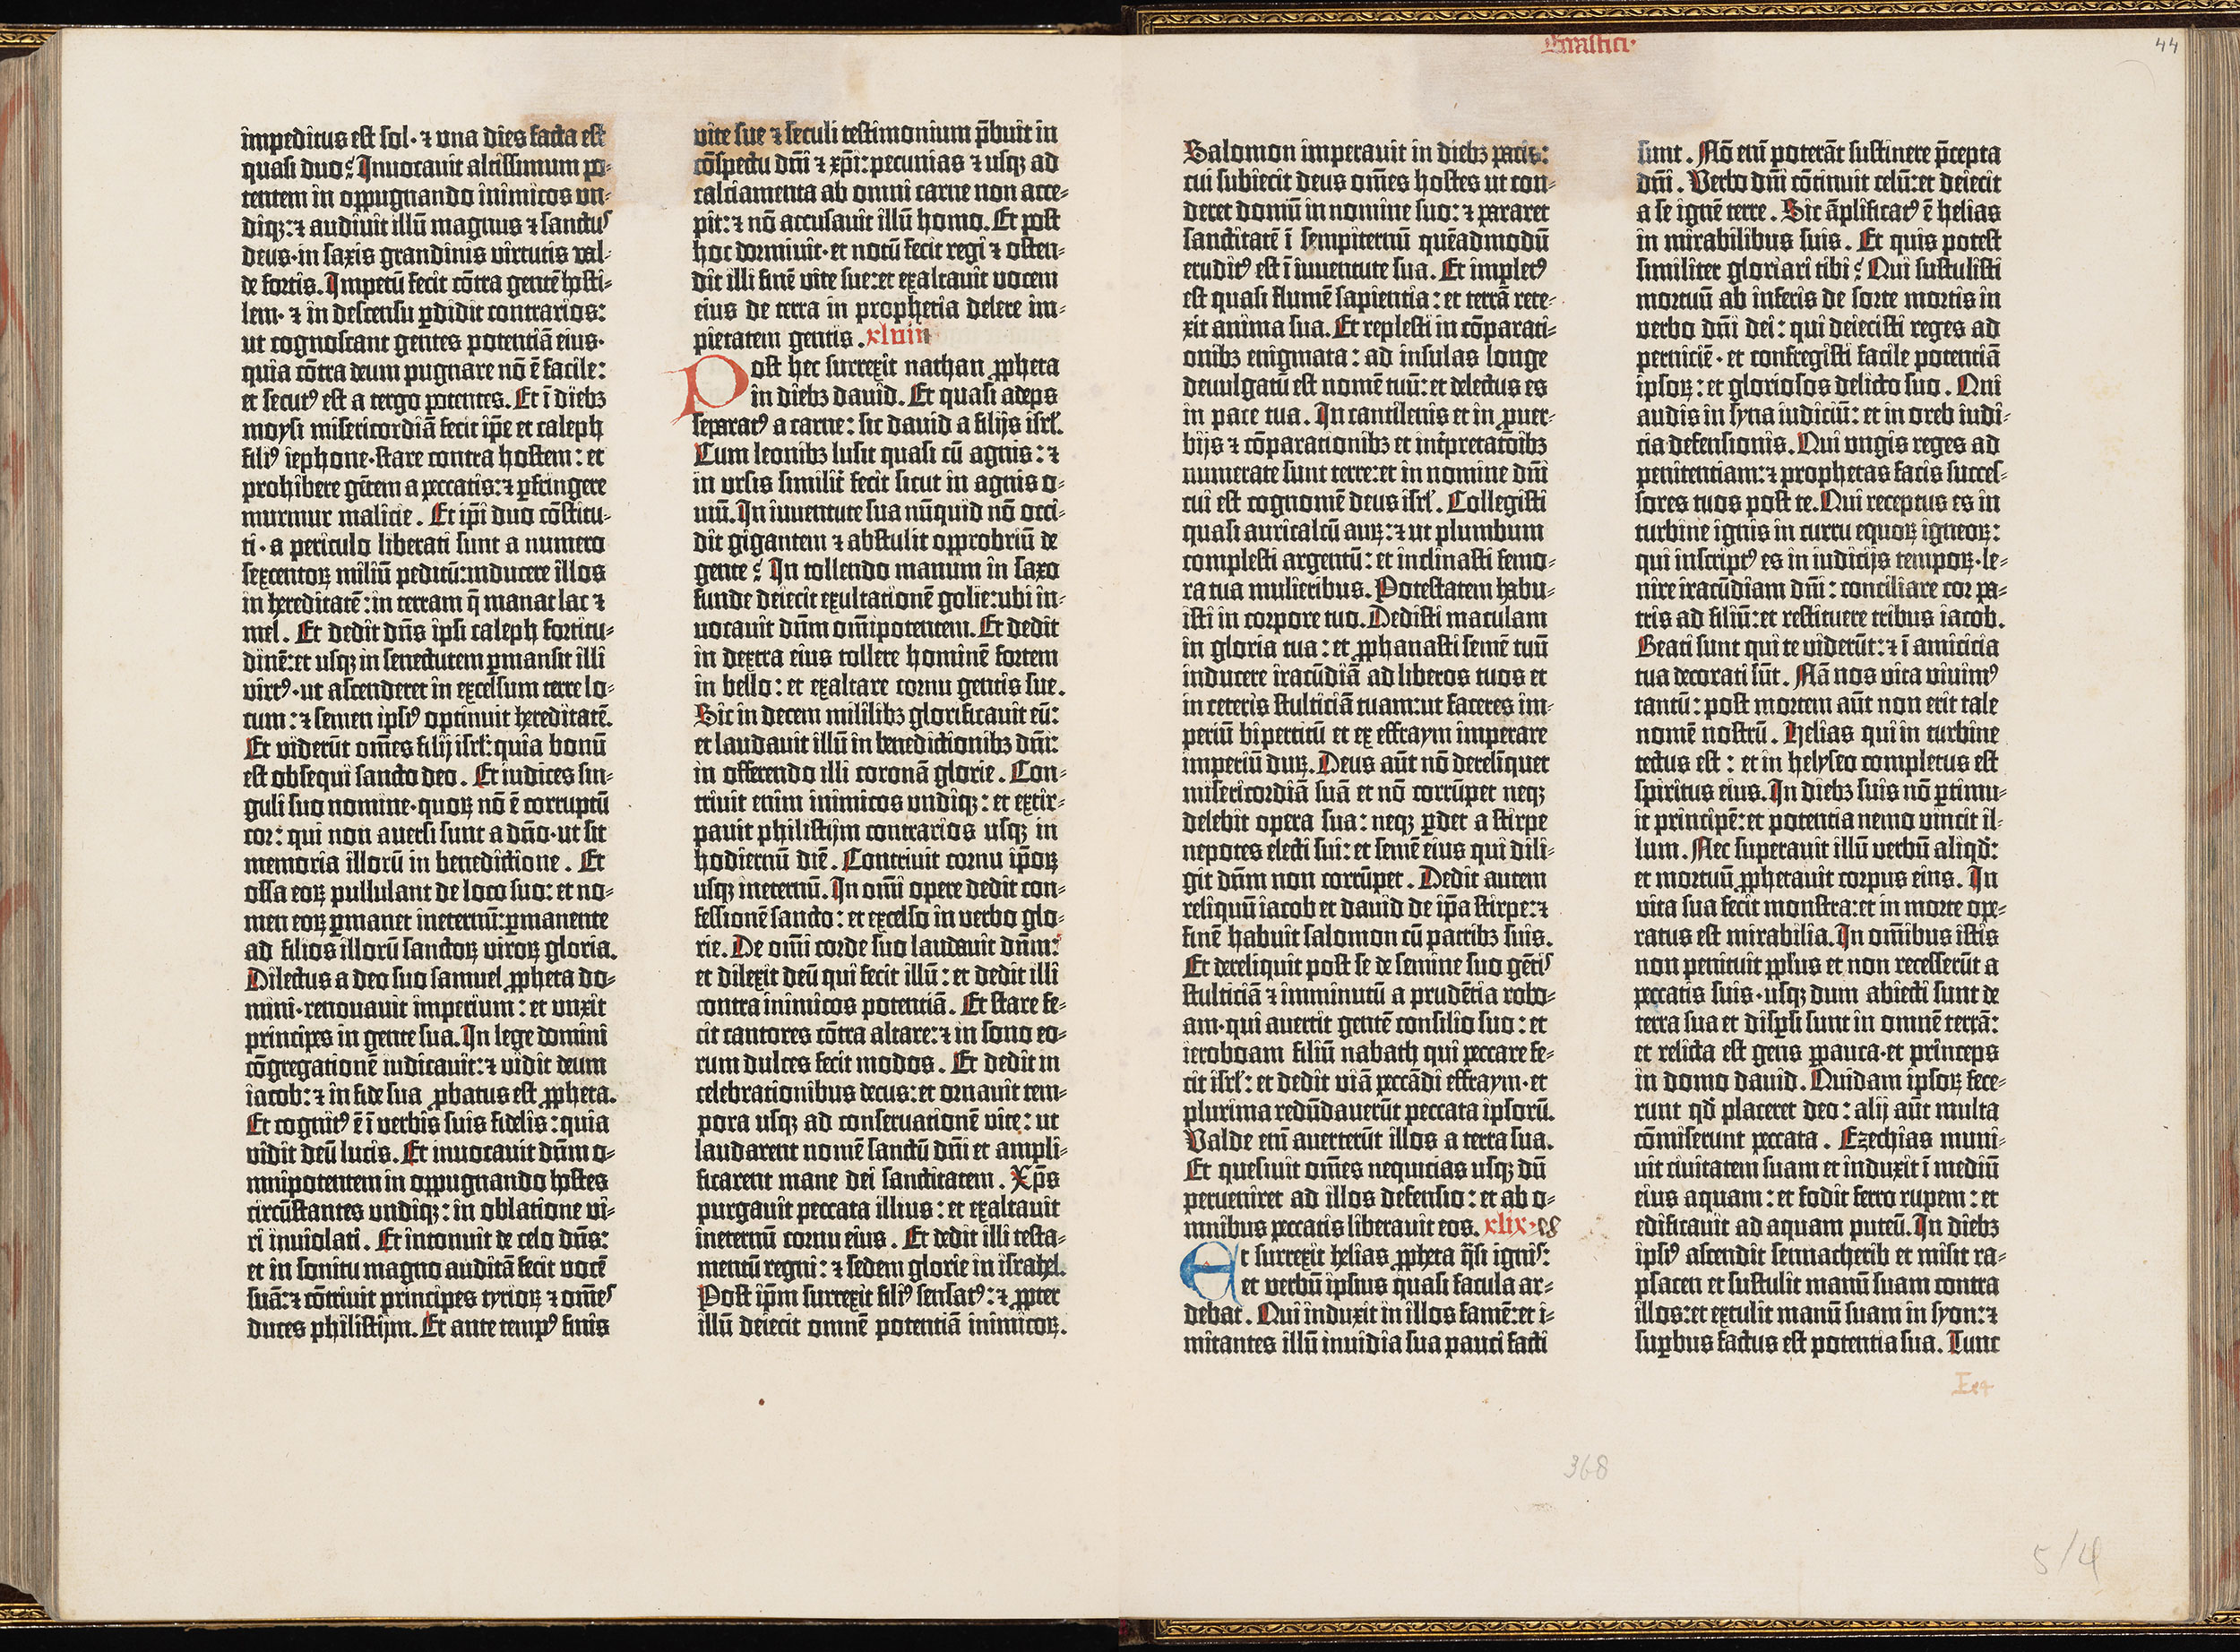 impeditus est sol· ⁊ una dies facta est
quasi duo? Inuocauit altissimum po-
tentem in oppugnando inimicos vn-
diqꝫ: ⁊ audiuit illū magnus ⁊ sanctus
deus·in saxis grandinis virtutis val-
de fortis. Impetū fecit cōtra gentē hosti-
lem· ⁊ in descensu ꝑdidit contrarios:
ut cognoscant gentes potentiā eius·
quia cōtra deum pugnare nō ē facile:
et secutꝰ est a tergo potentes. Et ī diebꝫ
moysi misericordiā fecit ip̄e et caleph
filiꝰ iephone·stare contra hostem: et
prohibere gētem a peccatis: ⁊ ꝑfringere
murmur malicie. Et ip̄i duo cōstitu-
ti· a periculo liberati sunt a numero
sexcentoꝝ miliū peditū: inducere illos
in hereditatē: in terram q̄ manat lac ⁊
mel. Et dedit dn̄s ipsi caleph fortitu-
dinē: et usqꝫ in senectutem ꝑmansit illi
virtꝰ· ut ascenderet in excelsum terre lo-
cum: ⁊ semen ipsiꝰ optinuit hereditatē.
Et viderūt om̄es filij isrl̄: quia bonū
est obsequi sancto deo. Et iudices sin-
guli suo nomine· quoꝝ nō ē corruptū
cor: qui non auersi sunt a dn̄o· ut sit
memoria illorū in benedictione. Et
ossa eoꝝ pullulant de loco suo: et no-
men eoꝝ ꝑmanet ineternū: ꝑmanente
ad filios illorū sanctoꝝ viroꝝ gloria.
Dilectus a deo suo samuel ꝓpheta do-
mini· renouauit imperium: et unxit
principes in gente sua. In lege domini
cōgregationē iudicauit: ⁊ vidit deum
iacob: ⁊ in fide sua ꝓbatus est ꝓpheta.
Et cognitꝰ ē ī verbis suis fidelis: quia
vidit deū lucis. Et inuocauit dn̄m o-
mnipotentem in oppugnando hostes
circūstantes undiqꝫ: in oblatione vi-
ri inuiolati. Et intonuit de celo dn̄s:
et in sonitu magno auditā fecit vocē
suā: ⁊ cōtriuit principes tyrioꝝ ⁊ om̄es
duces philistijm. Et ante tempꝰ finis
vite sue ⁊ seculi testimonium p̄buit in
cōspectu dn̄i ⁊ xp̄i: pecunias ⁊ usqꝫ ad
calciamenta ab omni carne non acce-
pit: ⁊ nō accusauit illū homo. Et post
hoc dormiuit· et notū fecit regi ⁊ osten-
dit illi finē vite sue: et exaltauit vocem
eius de terra in prophetia delere im-
pietatem gentis. xlviii
Post hec surrexit nathan ꝓpheta
in diebꝫ dauid. Et quasi adeps
separatꝰ a carne: sic dauid a filijs isrl̄.
Cum leonibꝫ lusit quasi cū agnis: ⁊
in vrsis similit̄ fecit sicut in agnis o-
uiū. In iuuentute sua nūquid nō occi-
dit gigantem ⁊ abstulit opprobriū de
gente? In tollendo manum in saxo
funde deiecit exultationē golie: ubi in-
uocauit dn̄m om̄ipotentem. Et dedit
in dextra eius tollere hominē fortem
in bello: et exaltare cornu gentis sue.
Sic in decem mililibꝫ glorificauit eū:
et laudauit illū in benedictionibꝫ dn̄i:
in offerendo illi coronā glorie. Con-
triuit enim inimicos undiqꝫ: et extir-
pauit philistijm contrarios usqꝫ in
hodiernū diē. Contriuit cornu ip̄oꝝ
usqꝫ ineternū. In om̄i opere dedit con-
fessionē sancto: et excelso in verbo glo-
rie. De om̄i corde suo laudauit dn̄m:
et dilexit deū qui fecit illū: et dedit illi
contra inimicos potentiā. Et stare fe-
cit cantores cōtra altare: ⁊ in sono eo-
rum dulces fecit modos. Et dedit in
celebrationibus decus: et ornauit tem-
pora usqꝫ ad conseruationē vite: ut
laudarent nomē sanctū dn̄i et ampli-
ficarent mane dei sanctitatem. Xp̄s
purgauit peccata illius: et exaltauit
ineternū cornu eius. Et dedit illi testa-
mentū regni: ⁊ sedem glorie in israhel.
Post ip̄m surrexit filiꝰ sensatꝰ: ⁊ ꝓpter
illū deiecit omnē potentiā inimicoꝝ.
44
Salomon imperauit in diebꝫ pacis:
cui subiecit deus om̄es hostes ut con-
deret domū in nomine suo: ⁊ pararet
sanctitatē ī sempiternū quēadmodū
eruditꝰ est ī iuuentute sua. Et impletꝰ
est quasi flumē sapientia: et terrā rete-
xit anima sua. Et replesti in cōparati-
onibꝫ enigmata: ad insulas longe
deuulgatū est nomē tuū: et delectus es
in pace tua. In cantilenis et in prouer-
bijs ⁊ cōparationibꝫ et int̄pretatōibꝫ
numerate sunt terre: et in nomine dn̄i
cui est cognomē deus isrl̄. Collegisti
quasi auricalcū auꝝ: ⁊ ut plumbum
complesti argentū: et inclinasti femo-
ra tua mulieribus. Potestatem habu-
isti in corpore tuo. Dedisti maculam
in gloria tua: et ꝓphanasti semē tuū
inducere iracūdiā ad liberos tuos et
in ceteris stulticiā tuam: ut faceres im-
periū bipertitū et ex effraym imperare
imperiū duꝝ. Deus aūt nō derelīquet
misericordiā suā et nō corrūpet neqꝫ
delebit opera sua: neqꝫ ꝑdet a stirpe
nepotes electi sui: et semē eius qui dili-
git dn̄m non corrūpet. Dedit autem
reliquū iacob et dauid de ip̄a stirpe: ⁊
finē habuit salomon cū patribꝫ suis.
Et dereliquit post se de semine suo gētis
stulticiā ⁊ imminutū a prudētia robo-
am· qui auertit gentē consilio suo: et
ieroboam filiū nabath qui peccare fe-
cit isrl̄: et dedit viā peccādi effraym· et
plurima redūdauerūt peccata ipsorū.
Valde eni auerterūt illos a terra sua.
Et quesiuit om̄es nequicias usqꝫ dū
perueniret ad illos defensio: et ab o-
mnibus peccatis liberauit eos. xlix
Et surrexit helias ꝓpheta q̄si ignis:
et verbū ipsius quasi facula ar-
debat. Qui induxit in illos famē: et i-
mitantes illū inuidia sua pauci facti
sunt. Nō eni poterāt sustinere p̄cepta
dn̄i. Verbo dn̄i cōtinuit celū: et deiecit
a se ignē terre. Sic āplificatꝰ ē helias
in mirabilibus suis. Et quis potest
similiter gloriari tibi? Qui sustulisti
mortuū ab inferis de sorte mortis in
verbo dn̄i dei: qui deiecisti reges ad
perniciē· et confregisti facile potenciā
ipsoꝝ: et gloriosos de lecto suo. Qui
audis in syna iudiciū: et in oreb iudi-
cia defensionis. Qui ungis reges ad
penitentiam: ⁊ prophetas facis succes-
sores tuos post te. Qui receptus es in
turbine ignis in curru equoꝝ igneoꝝ:
qui inscriptꝰ es in iudicijs tempoꝝ· le-
nire iracūdiam dn̄i: conciliare cor pa-
tris ad filiū: et restituere tribus iacob.
Beati sunt qui te viderūt: ⁊ ī amicicia
tua decorati sūt. Nā nos vita viuimꝰ
tantū: post mortem aūt non erit tale
nomē nostrū. Helias qui in turbine
tectus est: et in helyseo completus est
spiritus eius. In diebꝫ suis nō ꝑtimu-
it principē: et potentia nemo vincit il-
lum. Nec superauit illū verbū aliqd̄:
et mortuū ꝓphetauit corpus eius. In
vita sua fecit monstra: et in morte ope-
ratus est mirabilia. In om̄ibus istis
non penituit pp̄lus et non recesserūt a
peccatis suis· usqꝫ dum abiecti sunt de
terra sua et disꝑsi sunt in omnē terrā:
et relicta est gens ꝑpauca· et princeps
in domo dauid. Quidam ipsoꝝ fece-
runt qd̄ placeret deo: alij aūt multa
cōmiserunt peccata. Ezechias muni-
uit ciuitatem suam et induxit ī mediū
eius aquam: et fodit ferro rupem: et
edificauit ad aquam puteū. In diebꝫ
ipsiꝰ ascendit sennacherib et misit ra-
psacen et sustulit manū suam contra
illos: et extulit manū suam in syon: ⁊
suꝑbus factus est potentia sua. Tunc
368
5/4